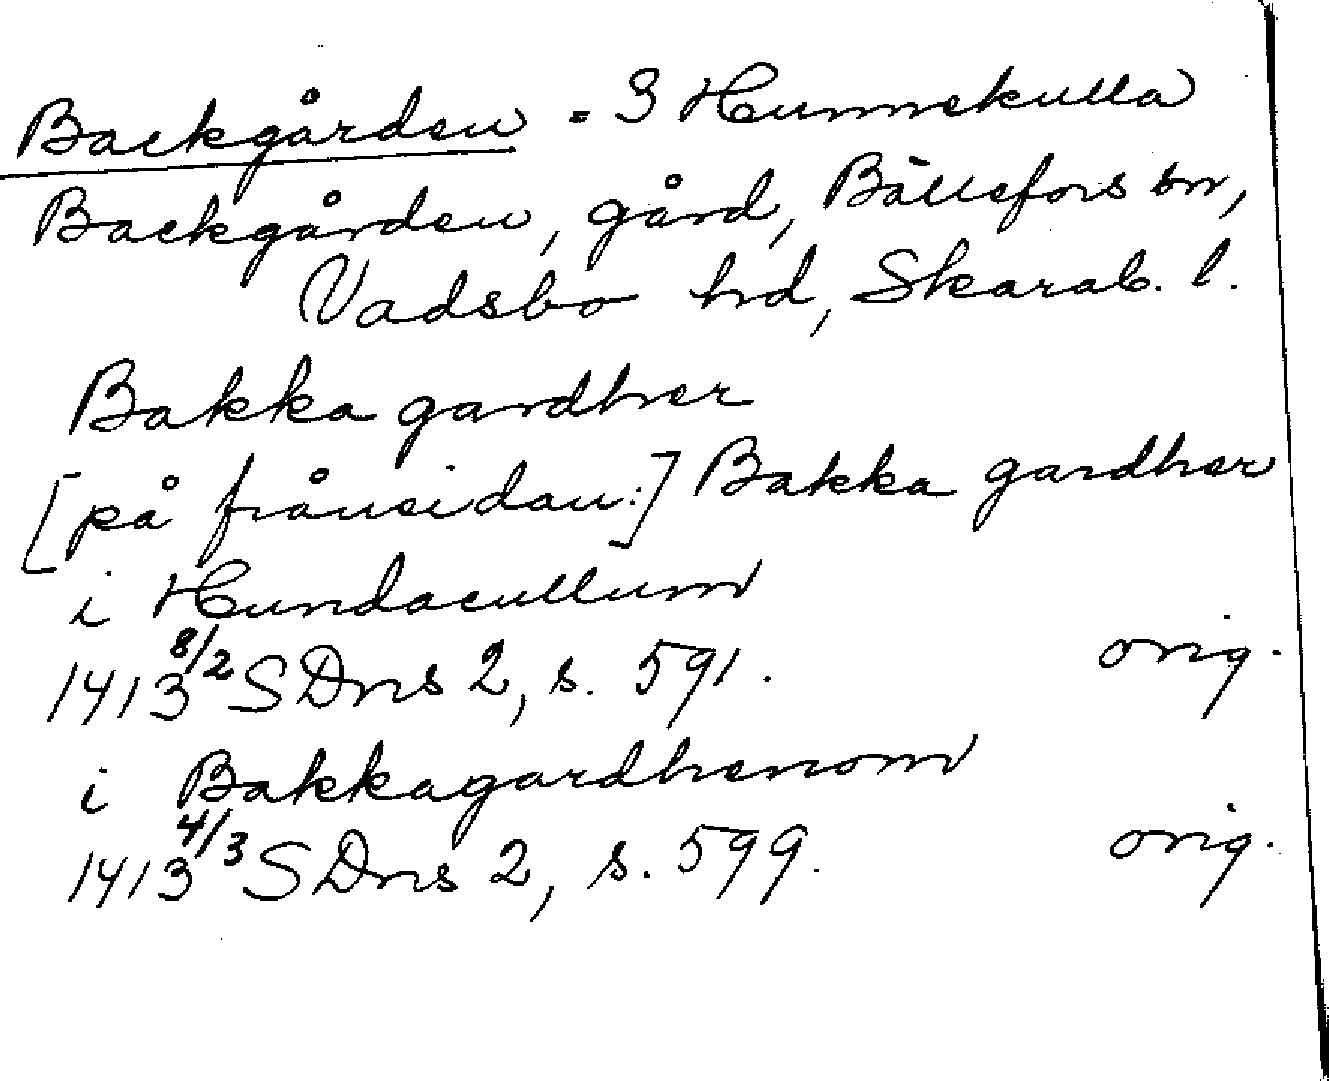 Backgården = 3 Hunnekulla
Backgården, gård, Bällefors sn,
Vadsbo hd, Skarab. l.
Bakka gardher
[på frånsidan:] Bakka gardher
i Hundacullum
1413 8/2 SDns 2, s. 591. orig.
i Bakkagardhenom
1413 4/3 SDns 2, s. 599. orig.